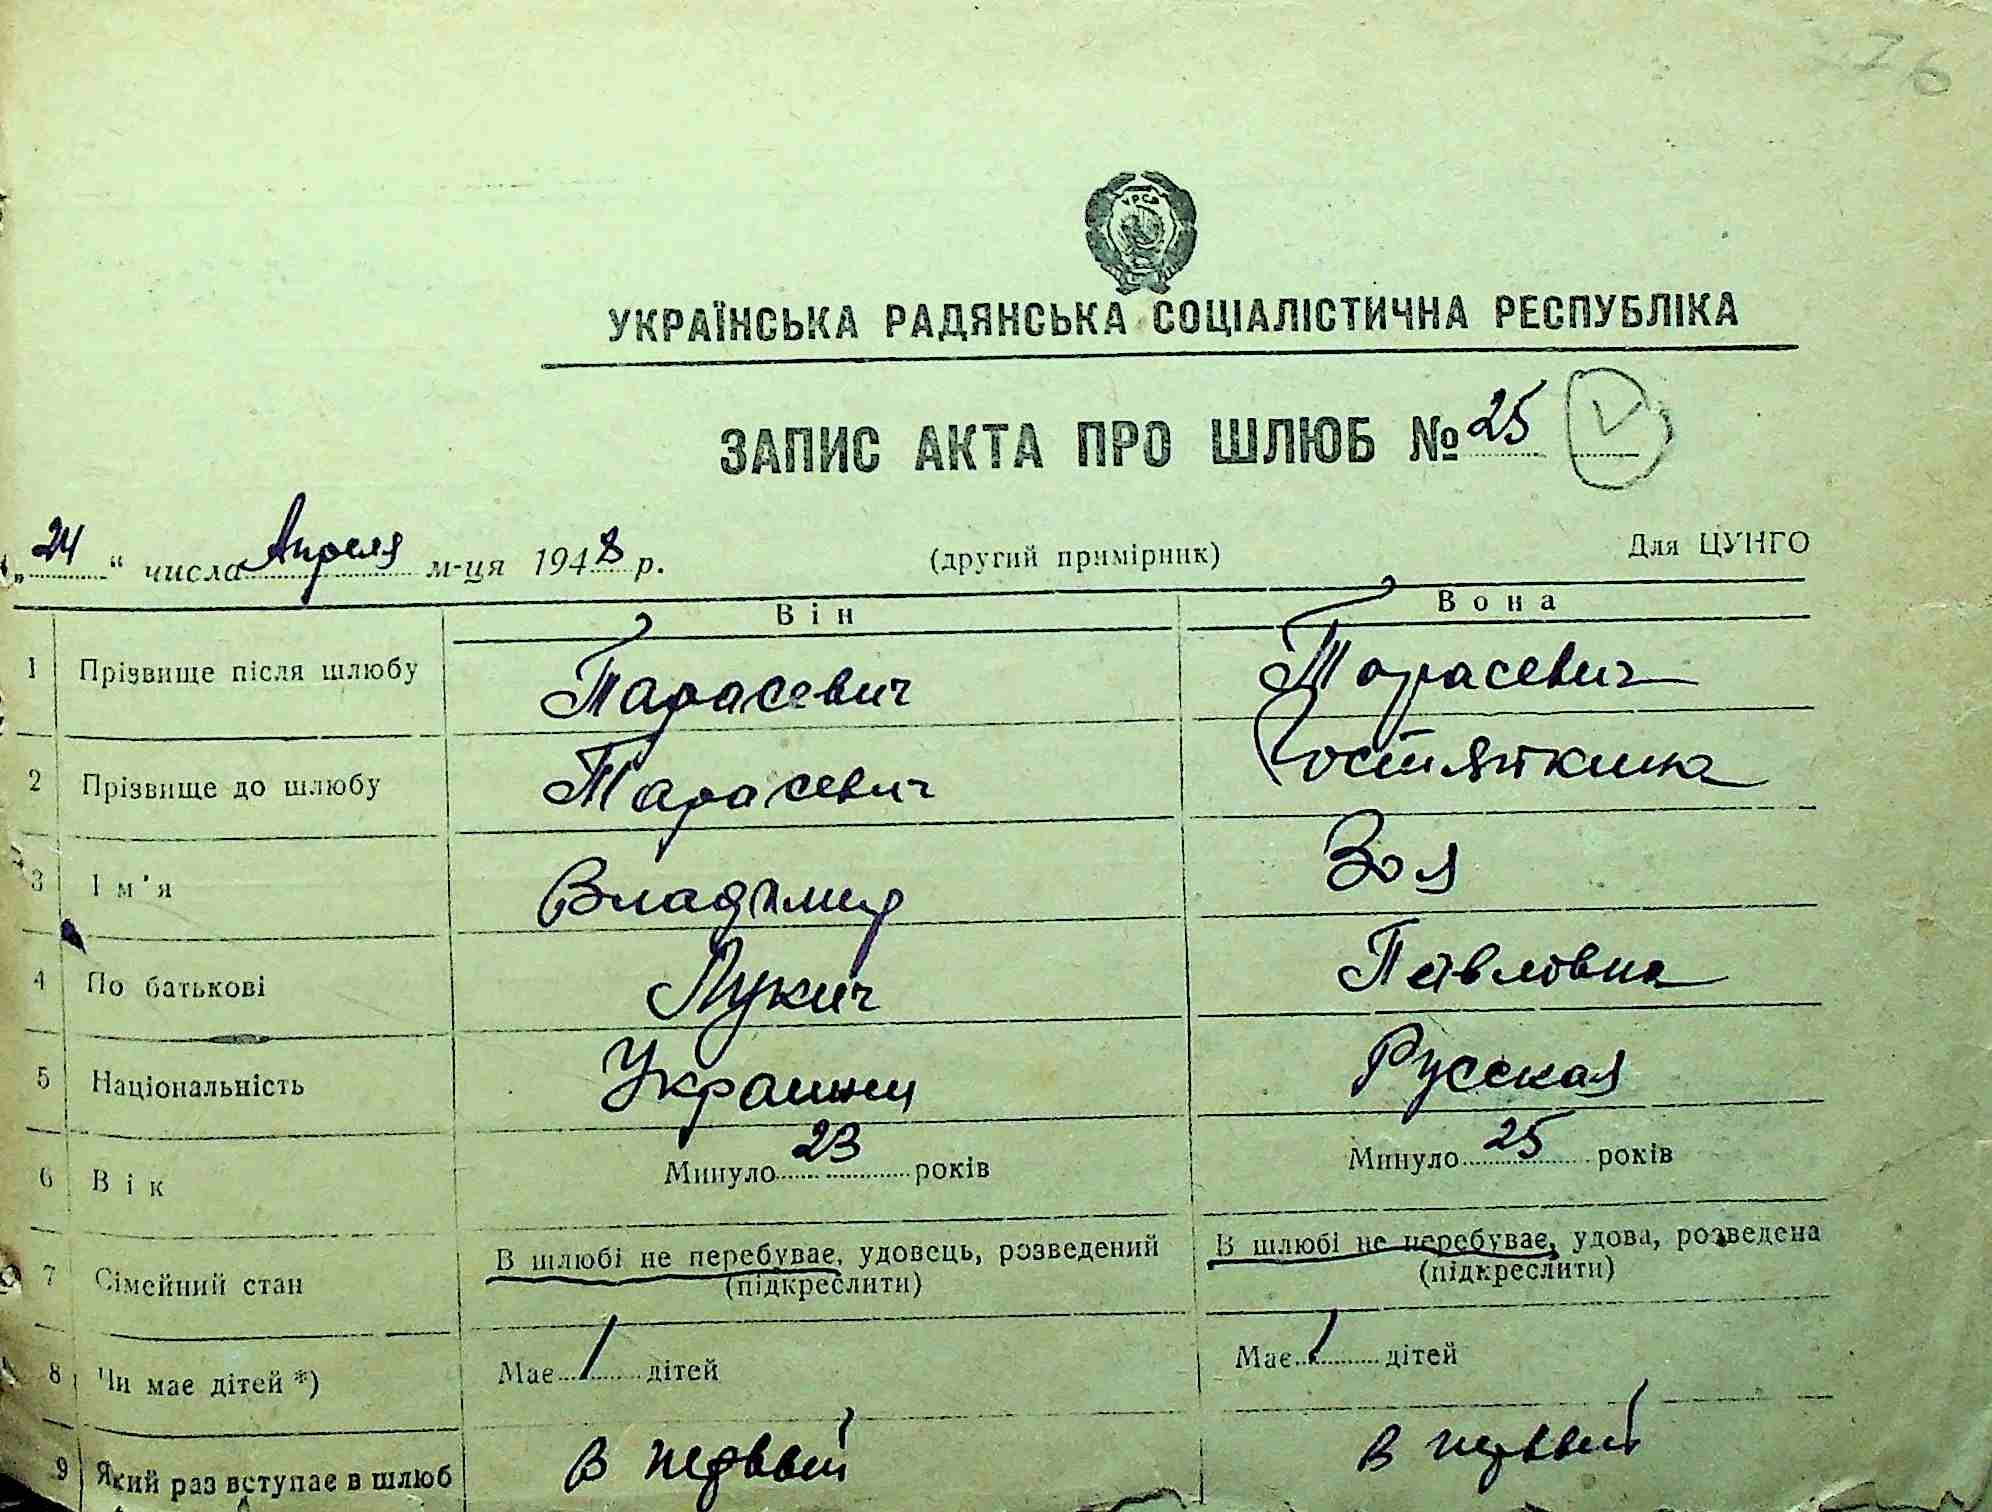 276
УРСР
УКРАЇНСЬКА РАДЯНСЬКА СОЦІАЛІСТИЧНА РЕСПУБЛІКА
ЗАПИС АКТА ПРО ШЛЮБ № 25 V
„24“ числа Апреля м-ця 1948 р. (другий примірник) Для ЦУНГО
Він Вона
1 Прізвище після шлюбу Тарасевич Тарасевич
2 Прізвище до шлюбу Тарасевич Гостяткина
3 Ім'я Владимир Зоя
4 По батькові Лукич Павловна
5 Національність Украинец Русская
6 Вік Минуло 23 років Минуло 25 років
7 Сімейний стан В шлюбі не перебуває, удовець, розведений В шлюбі не перебуває, удова, розведена
(підкреслити) (підкреслити)
8 Чи має дітей *) Має / дітей Має / дітей
9 Який раз вступає в шлюб в первый в первый